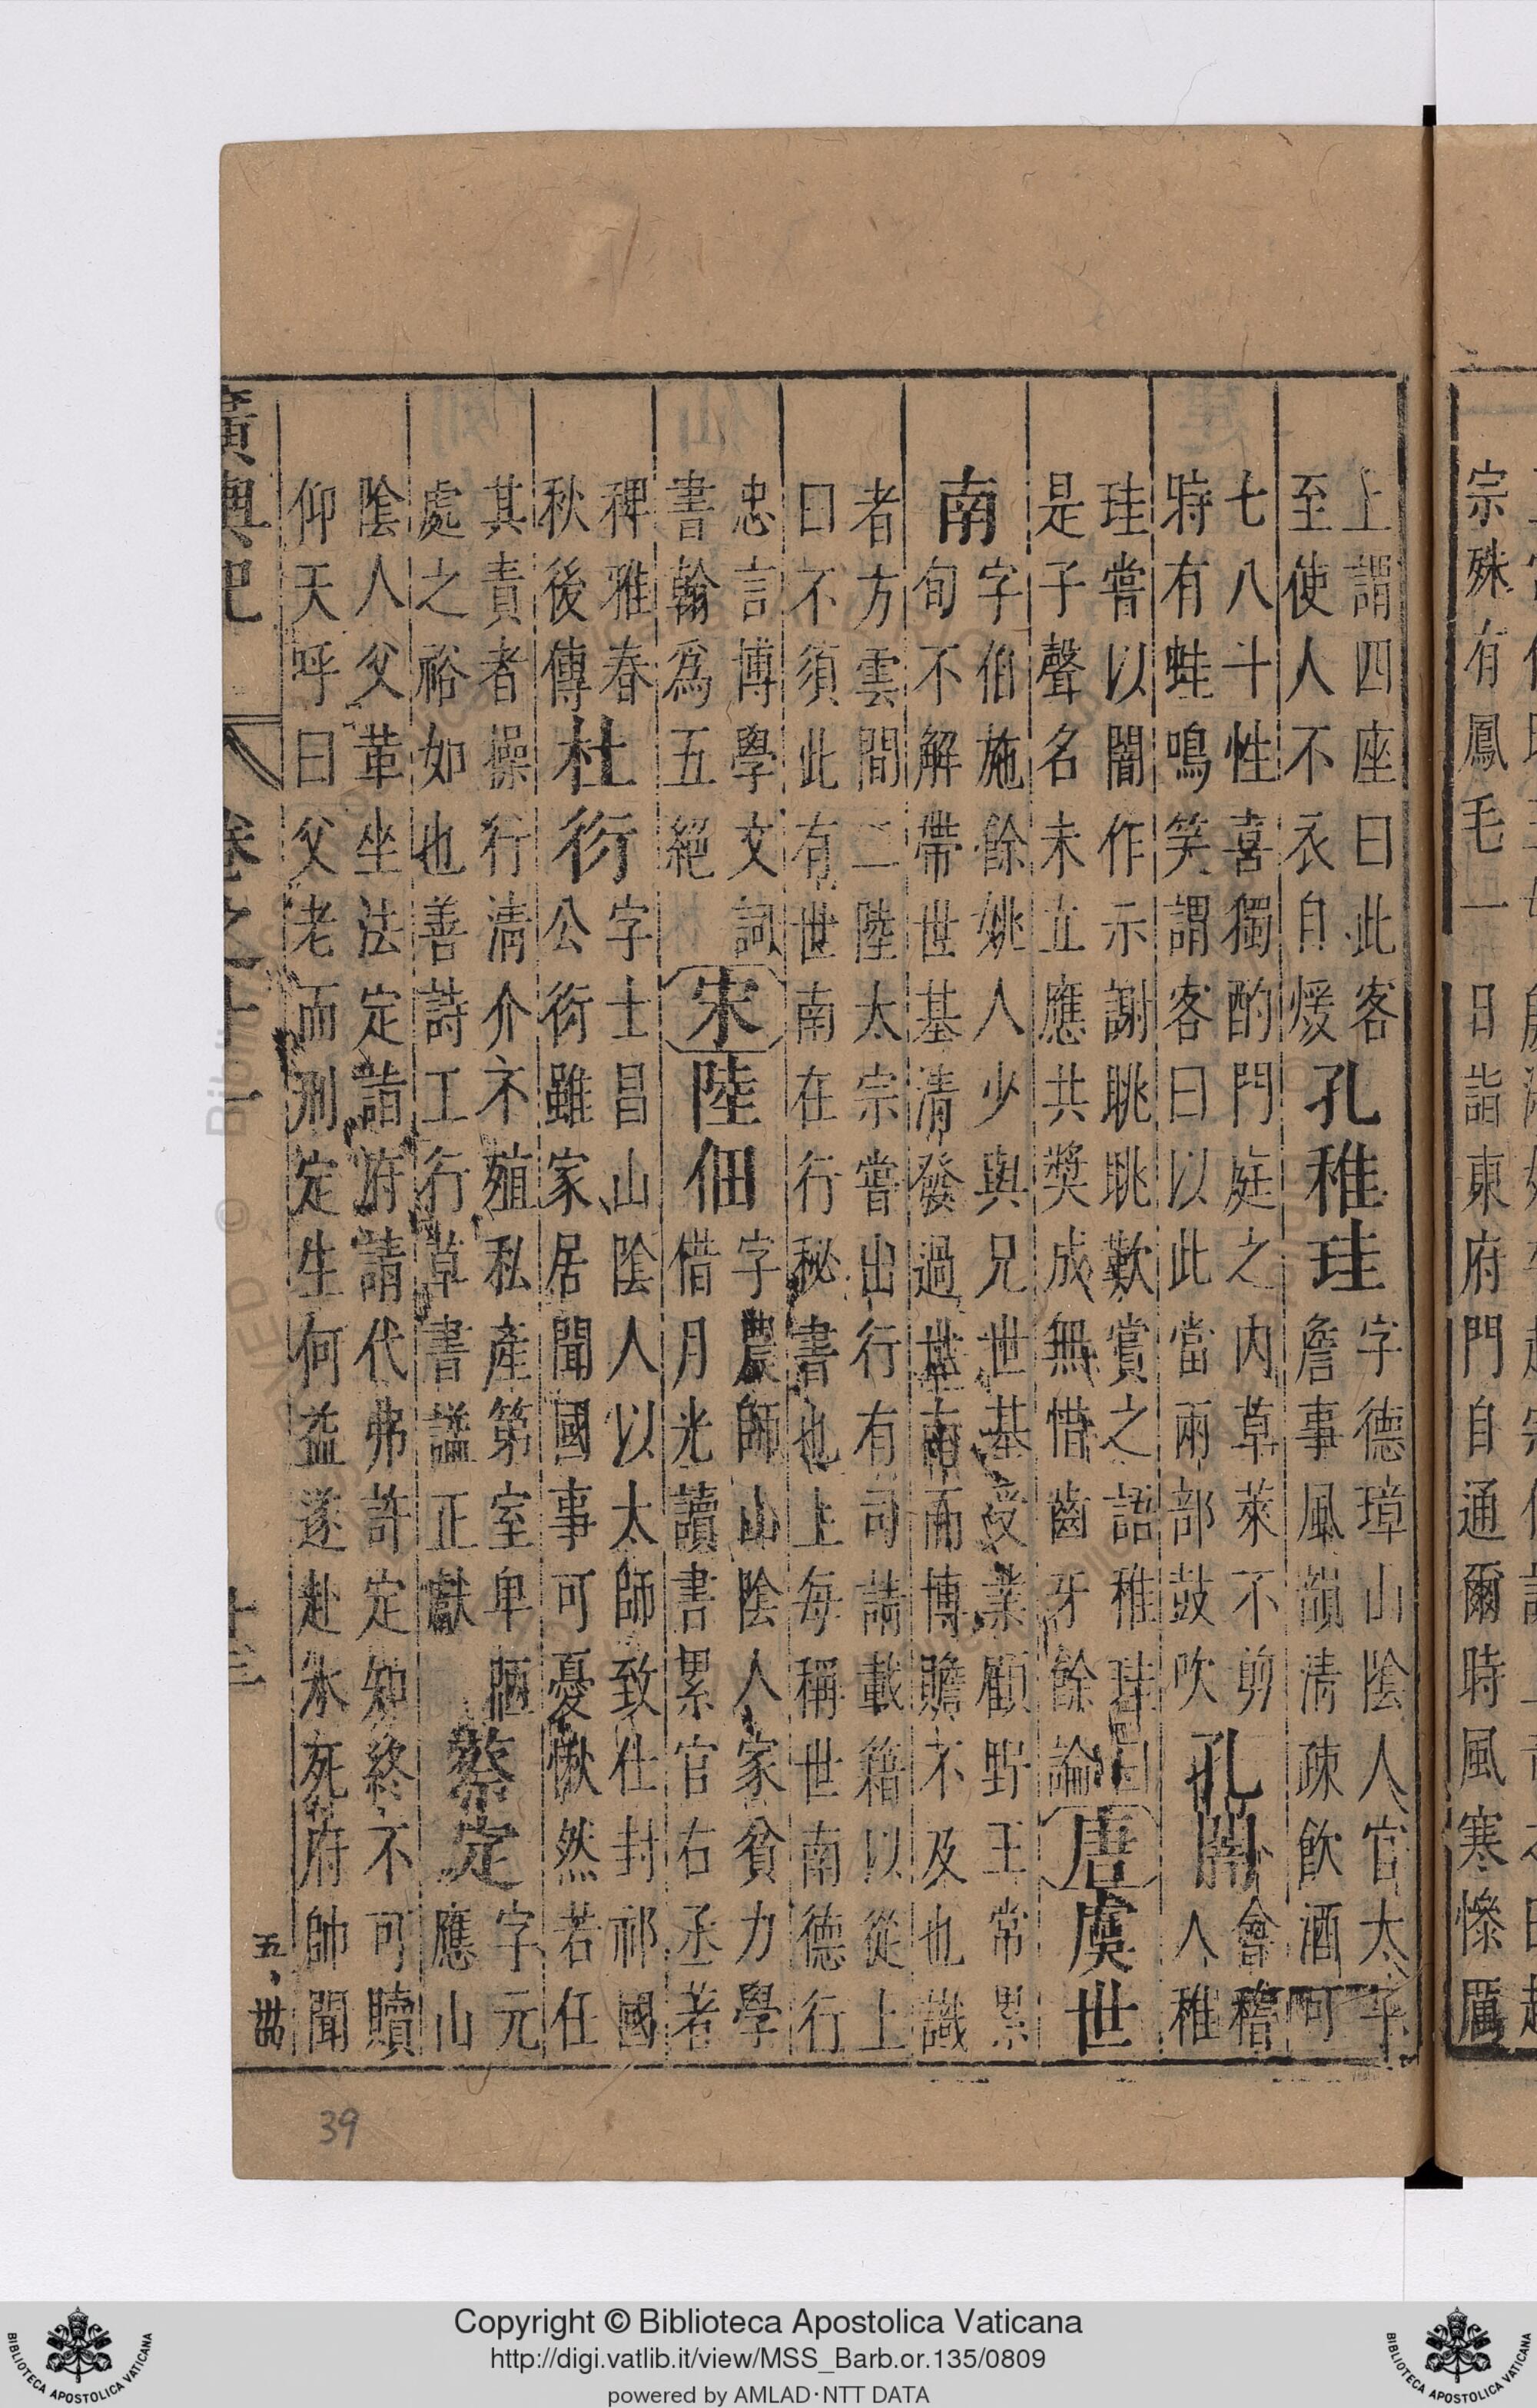 宗殊有鳳毛一日詣東府門自通爾時風寒慘厲
上謂四座曰此客
至使人不衣自煖
孔稚珪
字德璋山陰人官太子
詹事風韻清疎飲酒可
七八斗性喜獨酌門庭之內草萊不剪
時有蛙鳴笑謂客曰以此當兩部鼓吹
孔闓
會稽
人稚
珪嘗以闇作示謝眺眺歎賞之語稚珪曰
是子聲名未立應共奬成無惜齒牙餘論
唐
虞世
南
字伯施餘姚人少與兄世基受業顧野王常累
旬不解帶世基清發過世南而博贍不及也識
者方雲間二陸太宗嘗出行有司請載籍以從上
曰不須此有世南在行秘書也上每稱世南德行
忠言博學文詞
書翰爲五絕
宋
陸佃
字農師山陰人家貧力學
借月光讀書累官右丞著
稗雅春
秋後傳
杜衍
字士昌山陰人以太師致仕封祁國
公衍雖家居聞國事可憂愀然若任
其責者操行清介不殖私產第室卑陋
處之裕如也善詩工行草書謚正獻
蔡定
字元
應山
陰人父革坐法定詣府請代弗許定知終不可贖
仰天呼曰父老而刑定生何益遂赴氷死府帥聞
廣輿記
卷之十一
十三
39
Copyright © Biblioteca Apostolica Vaticana
http://digi.vatlib.it/view/MSS_Barb.or.135/0809
powered by AMLAD·NTT DATA